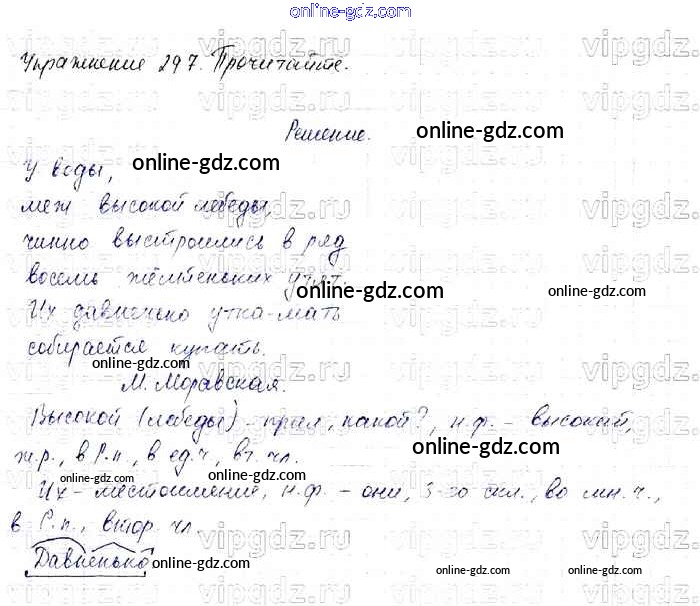 online-gdz.com
Упражнение 297. Прочитайте.
Решение.
online-gdz.com
У воды,
online-gdz.com
меж высокой лебеды,
чинно выстроились в ряд
восемь жёлтеньких утят.
online-gdz.com
online-gdz.com
Их давненько утка-мать
собирается купать.
online-gdz.com
М. Моравская.
Высокой (лебеды) - прил., какой?, н.ф. - высокий,
online-gdz.com
ж.р., в Р.п., в ед.ч., вт. чл.
online-gdz.com
Их - местоимение, н.ф. - они, 3-го скл., во мн.ч.,
в Р.п., втор. чл.
online-gdz.com
Давненько
online-gdz.com
online-gdz.com
online-gdz.com
vipgdz.ru